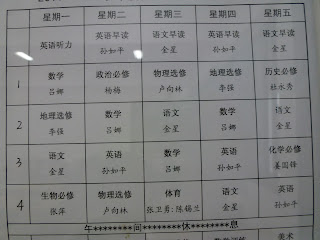 星期一 星期二 星期三 星期四 星期五
英语听力 英语早读 语文早读 英语早读 语文早读
孙如平 金星 孙如平 金星
1 数学 政治必修 物理选修 地理选修 历史必修
吕娜 杨梅 卢向林 李强 杜永秀
2 地理选修 数学 语文 数学 语文
李强 吕娜 金星 吕娜 金星
3 语文 英语 数学 英语 化学必修
金星 孙如平 吕娜 孙如平 姜国锋
4 生物必修 物理选修 体育 语文 英语
张萍 卢向林 张卫勇:陈锡兰 金星 孙如平
午********间********休********息
美术